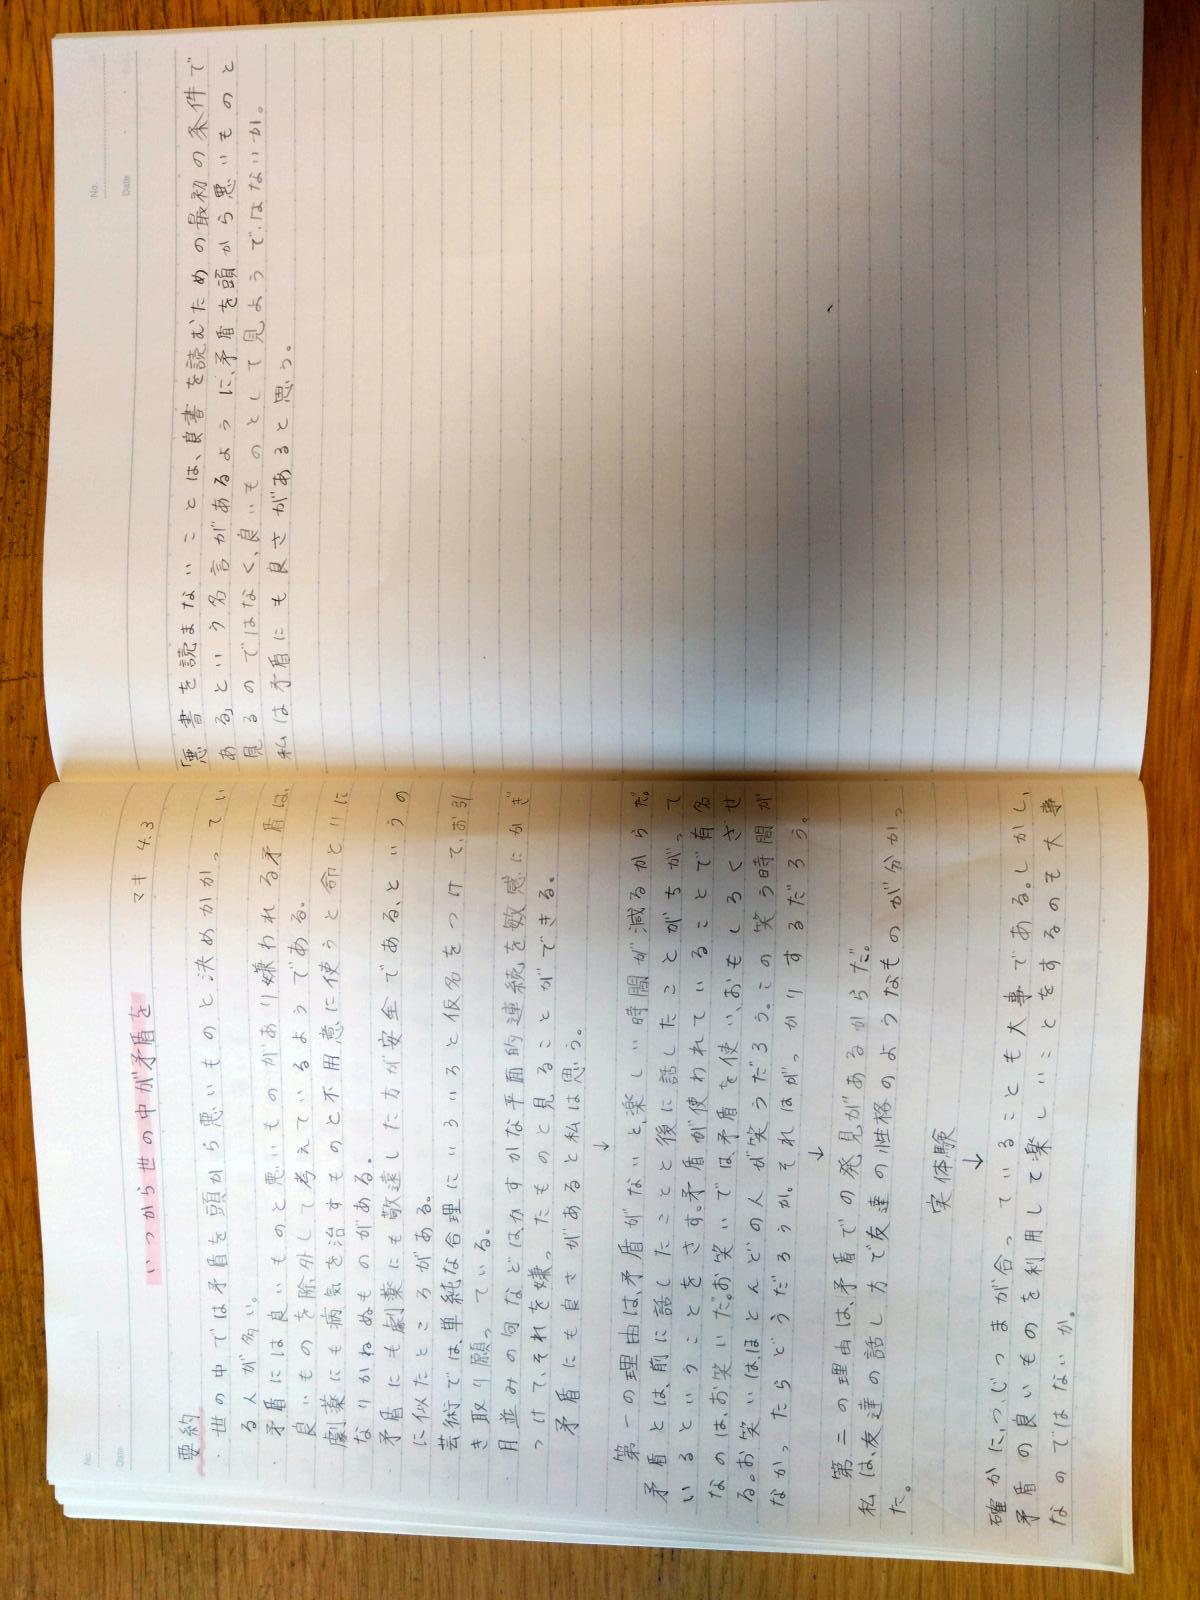 No.
Date
いつから世の中が矛盾を
マキ 4.3
要約
・世の中では矛盾を頭から悪いものと決めかかってい
る人が多い。
・矛盾には良いものと悪いものがあり嫌われる矛盾は、
良いものを除外して考えているようである。
・劇薬にも病気を治すものと不用意に使うと命とりに
なりかねぬものがある。
・矛盾にも劇薬にも敬遠した方が安全である、というの
に似たところがある。
・芸術では、単純な合理にいろいろと仮名をつけて、お引
き取り願っている。
・月並みの句などは、かすかな平面的連続を敏感にかぎ
つけて、それを嫌ったものと見ることができる。
矛盾にも良さがあると私は思う。
↓
第一の理由は、矛盾がないと、楽しい時間が減るからだ。
矛盾とは、前に話したことと後に話したことがちがって
いるということをさす。矛盾が使われていることで有名
なのは、お笑いだ。お笑いでは、矛盾を使い、おもしろくさせ
る。お笑いは、ほとんどの人が笑うだろう。この笑う時間が
なかったらどうだろうか。それはがっかりするだろう。
↓
第二の理由は、矛盾での発見があるからだ。
私は、友達の話し方で友達の性格のようなものが分かっ
た。
実体験
↓
確かに、つじつまが合っていることも大事である。しかし、
矛盾の良いものを利用して楽しいことをするのも大事
なのではないか。
No.
Date
「悪書を読まないことは、良書を読むための最初の条件で
ある」という名言があるように、矛盾を頭から悪いものと
見るのではなく、良いものとして見ようではないか。
私は矛盾にも良さがあると思う。